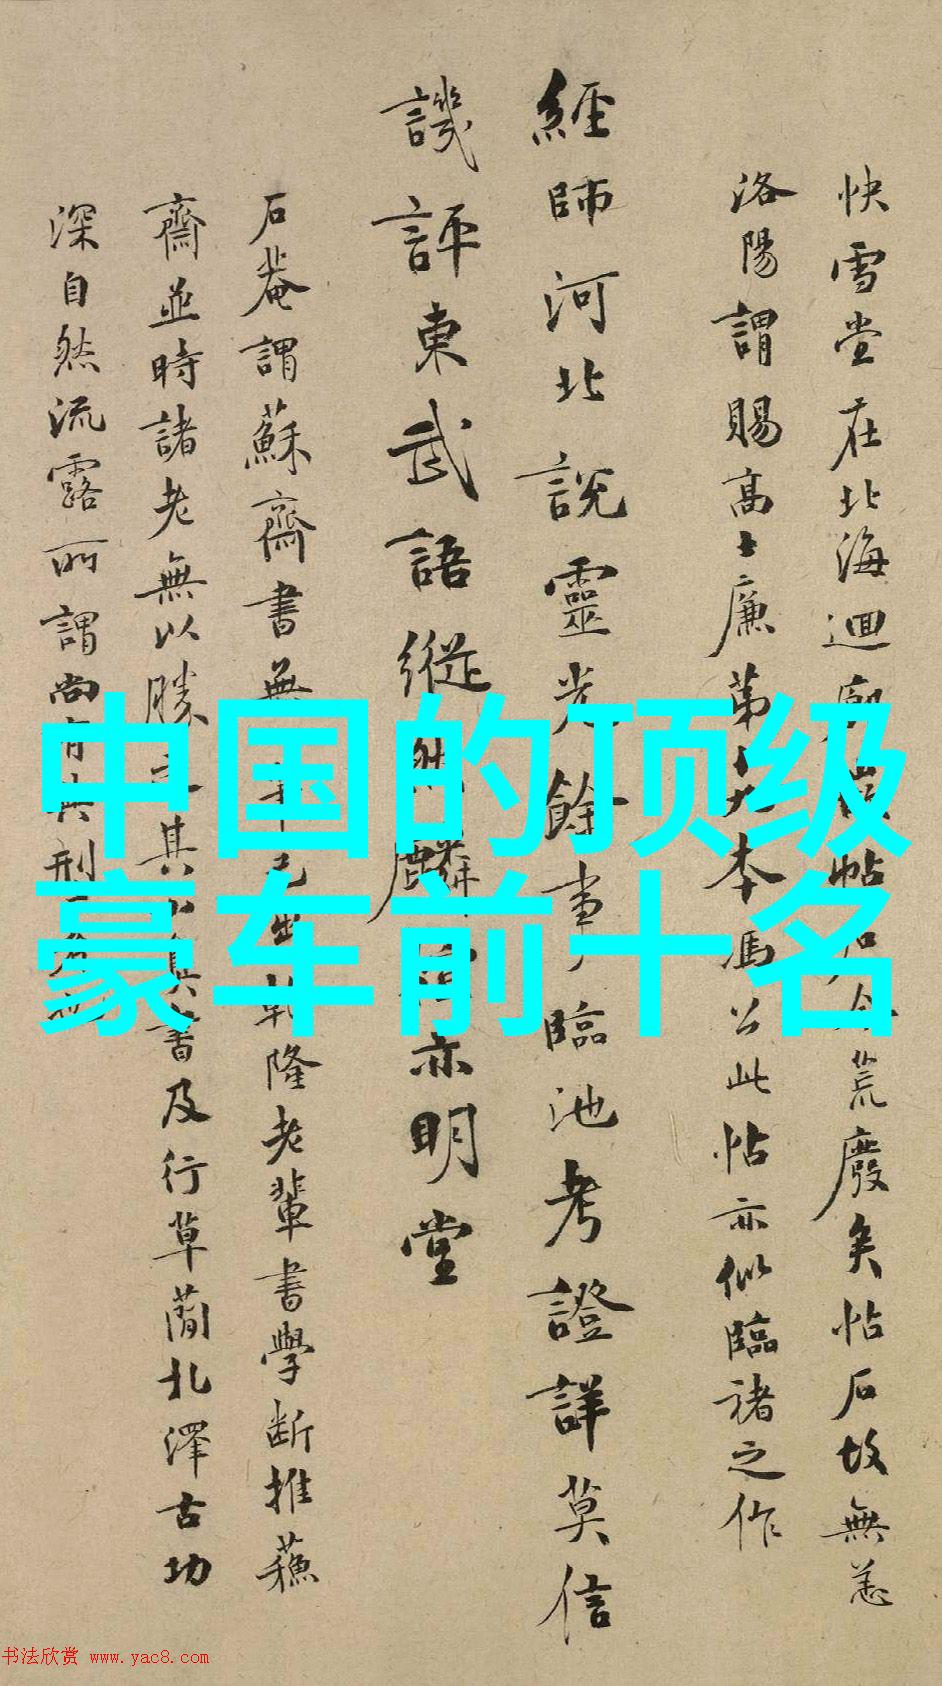 快雪堂在北海迴廊
荒廢矣帖石故無恙
洛陽謂賜高士廉第
本馮公此帖亦似臨褚之作
經師河北說靈光餘事臨池考證詳莫信
譏評東武語縱
亦明堂
石菴謂蘇齋書無
乾隆老輩書學斷推蘓
齋並時諸老無以勝
其
真書及行草蕳北澤古功
深自然流露所謂尚有典刑
中国的顶级
豪车前十名
书法欣赏 www.yac8.com